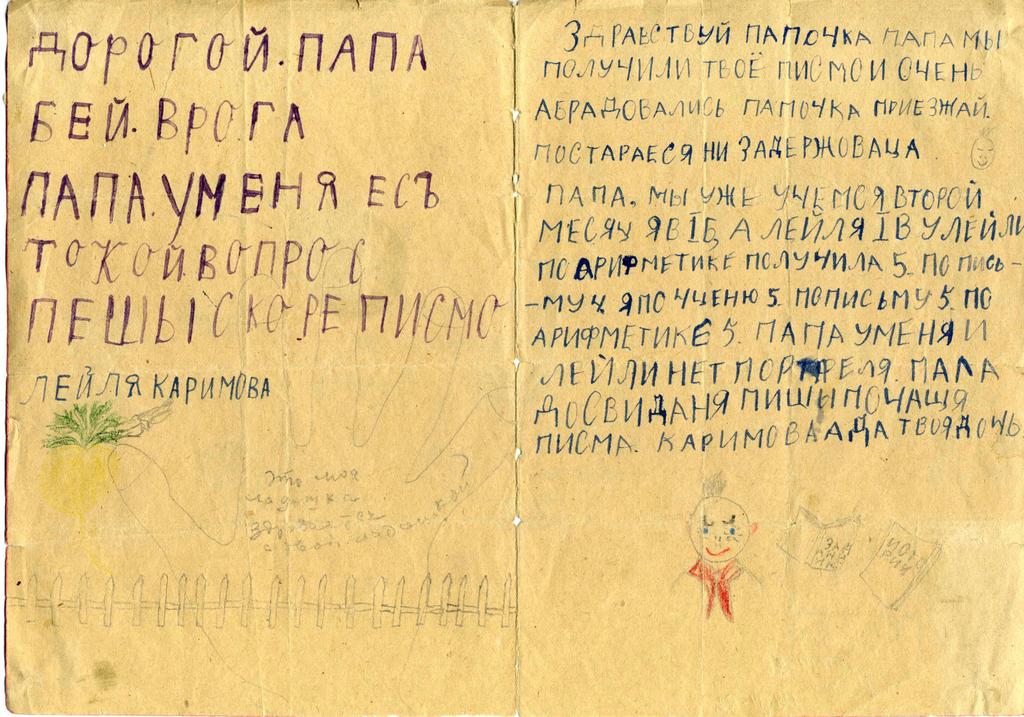 ДОРОГОЙ. ПАПА
БЕЙ. ВРО.ГА
ПАПА. УМЕНЯ ЕСЪ
ТОКОЙ.ВОПРОС
ПЕШЫ СКОРЕ ПИСМО
ЛЕЙЛЯ КАРИМОВА
Это моя
ладошка
здоровается
с твоей ладошкой
ЗДРАВСТВУЙ ПАПОЧКА ПАПА МЫ
ПОЛУЧИЛИ ТВОЁ ПИСМО И ОЧЕНЬ
АБРАДОВАЛИСЬ ПАПОЧКА ПРИЕЗЖАЙ.
ПОСТАРАЕСЯ НИ ЗАДЕРЖОВАЦА
ПАПА, МЫ УЖЕ УЧЕМСЯ ВТОРОЙ
МЕСЯЦ Я В IБ А ЛЕЙЛЯ IВ У ЛЕЙЛИ
ПО АРИФМЕТИКЕ ПОЛУЧИЛА 5. ПО ПИСЬ-
-МУ 4 Я ПО ЧЧЕНЮ 5. ПОПИСЬМУ 5. ПО
АРИФМЕТИКЕ 5. ПАПА УМЕНЯ И
ЛЕЙЛИ НЕТ ПОРТФЕЛЯ. ПАПА
ДОСВИДАНЯ ПИШЫ ПОЧАЩЯ
ПИСМА. КАРИМОВА АДА ТВОЯ ДОЧЬ